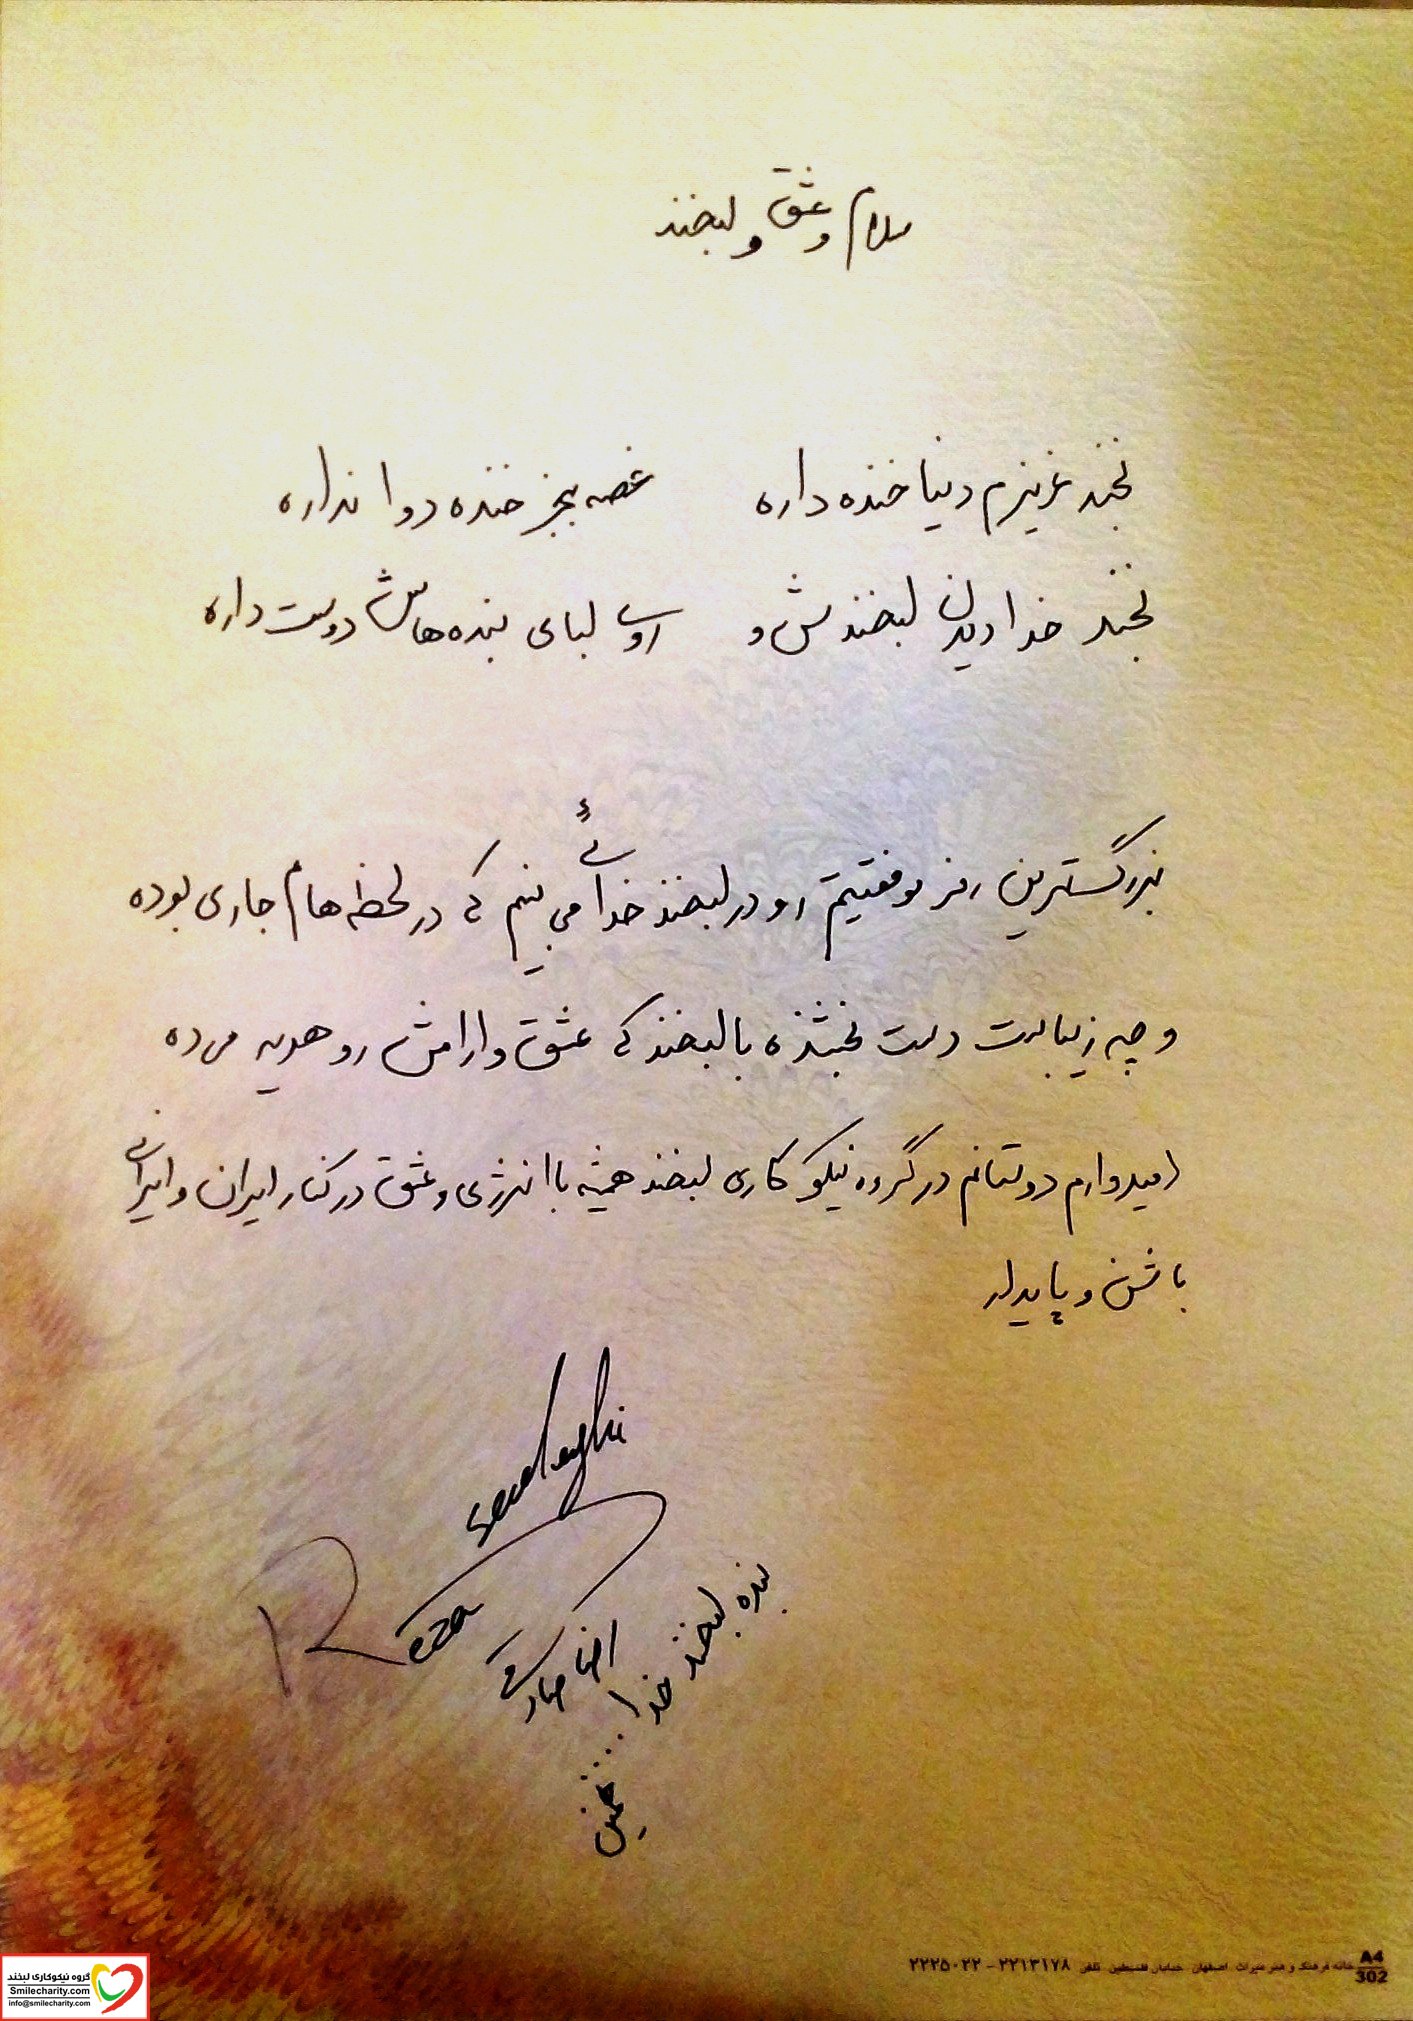 سلام و عشق و لبخند
بخند عزیزم دنیا خنده داره غصه بجز خنده دوا نداره
بخند خدا دیدن لبخندش و روی لبای بنده هاش دوست داره
بزرگترین رمز موفقیتم رو در لبخند خدائی می بینم که در لحظه هام جاری بوده
و چه زیباست دست بخشنده با لبخند که عشق و ارامش رو هدیه می ده
امیدوارم دوستانم در گروه نیکوکاری لبخند همیشه با انرژی و عشق در کنار ایران و ایرانی
باشن و پایدار
Reza sadeghi
رضا صادقی
بنده لبخند خدا ....
خانه فرهنگ و هنر میراث اصفهان خیابان فلسطین تلفن ۲۲۱۳۱۷۸ - ۲۲۲۵۰۲۲
A4
302
گروه نیکوکاری لبخند
Smilecharity.com
info@smilecharity.com